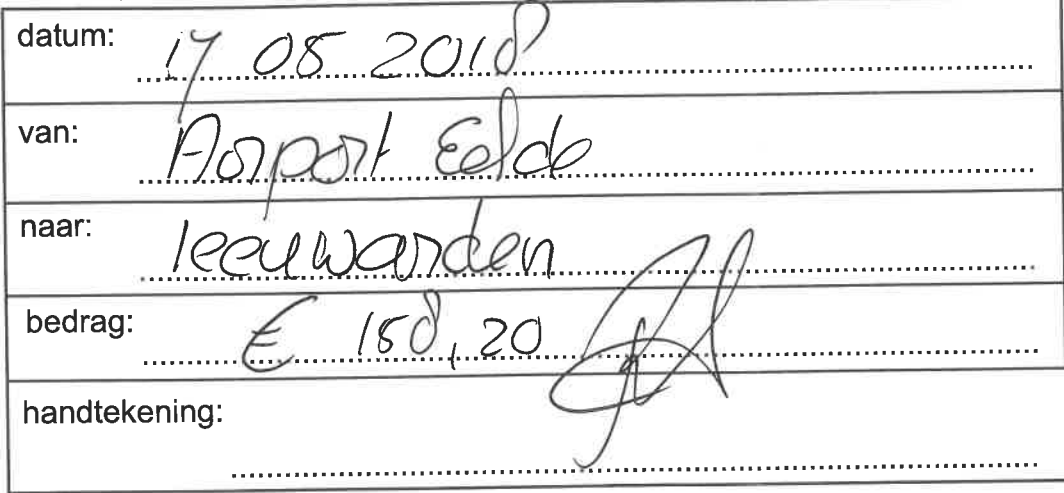 datum: 17 05 2018
van: Airport Eelde
naar: leeuwarden
bedrag: € 158,20
handtekening: